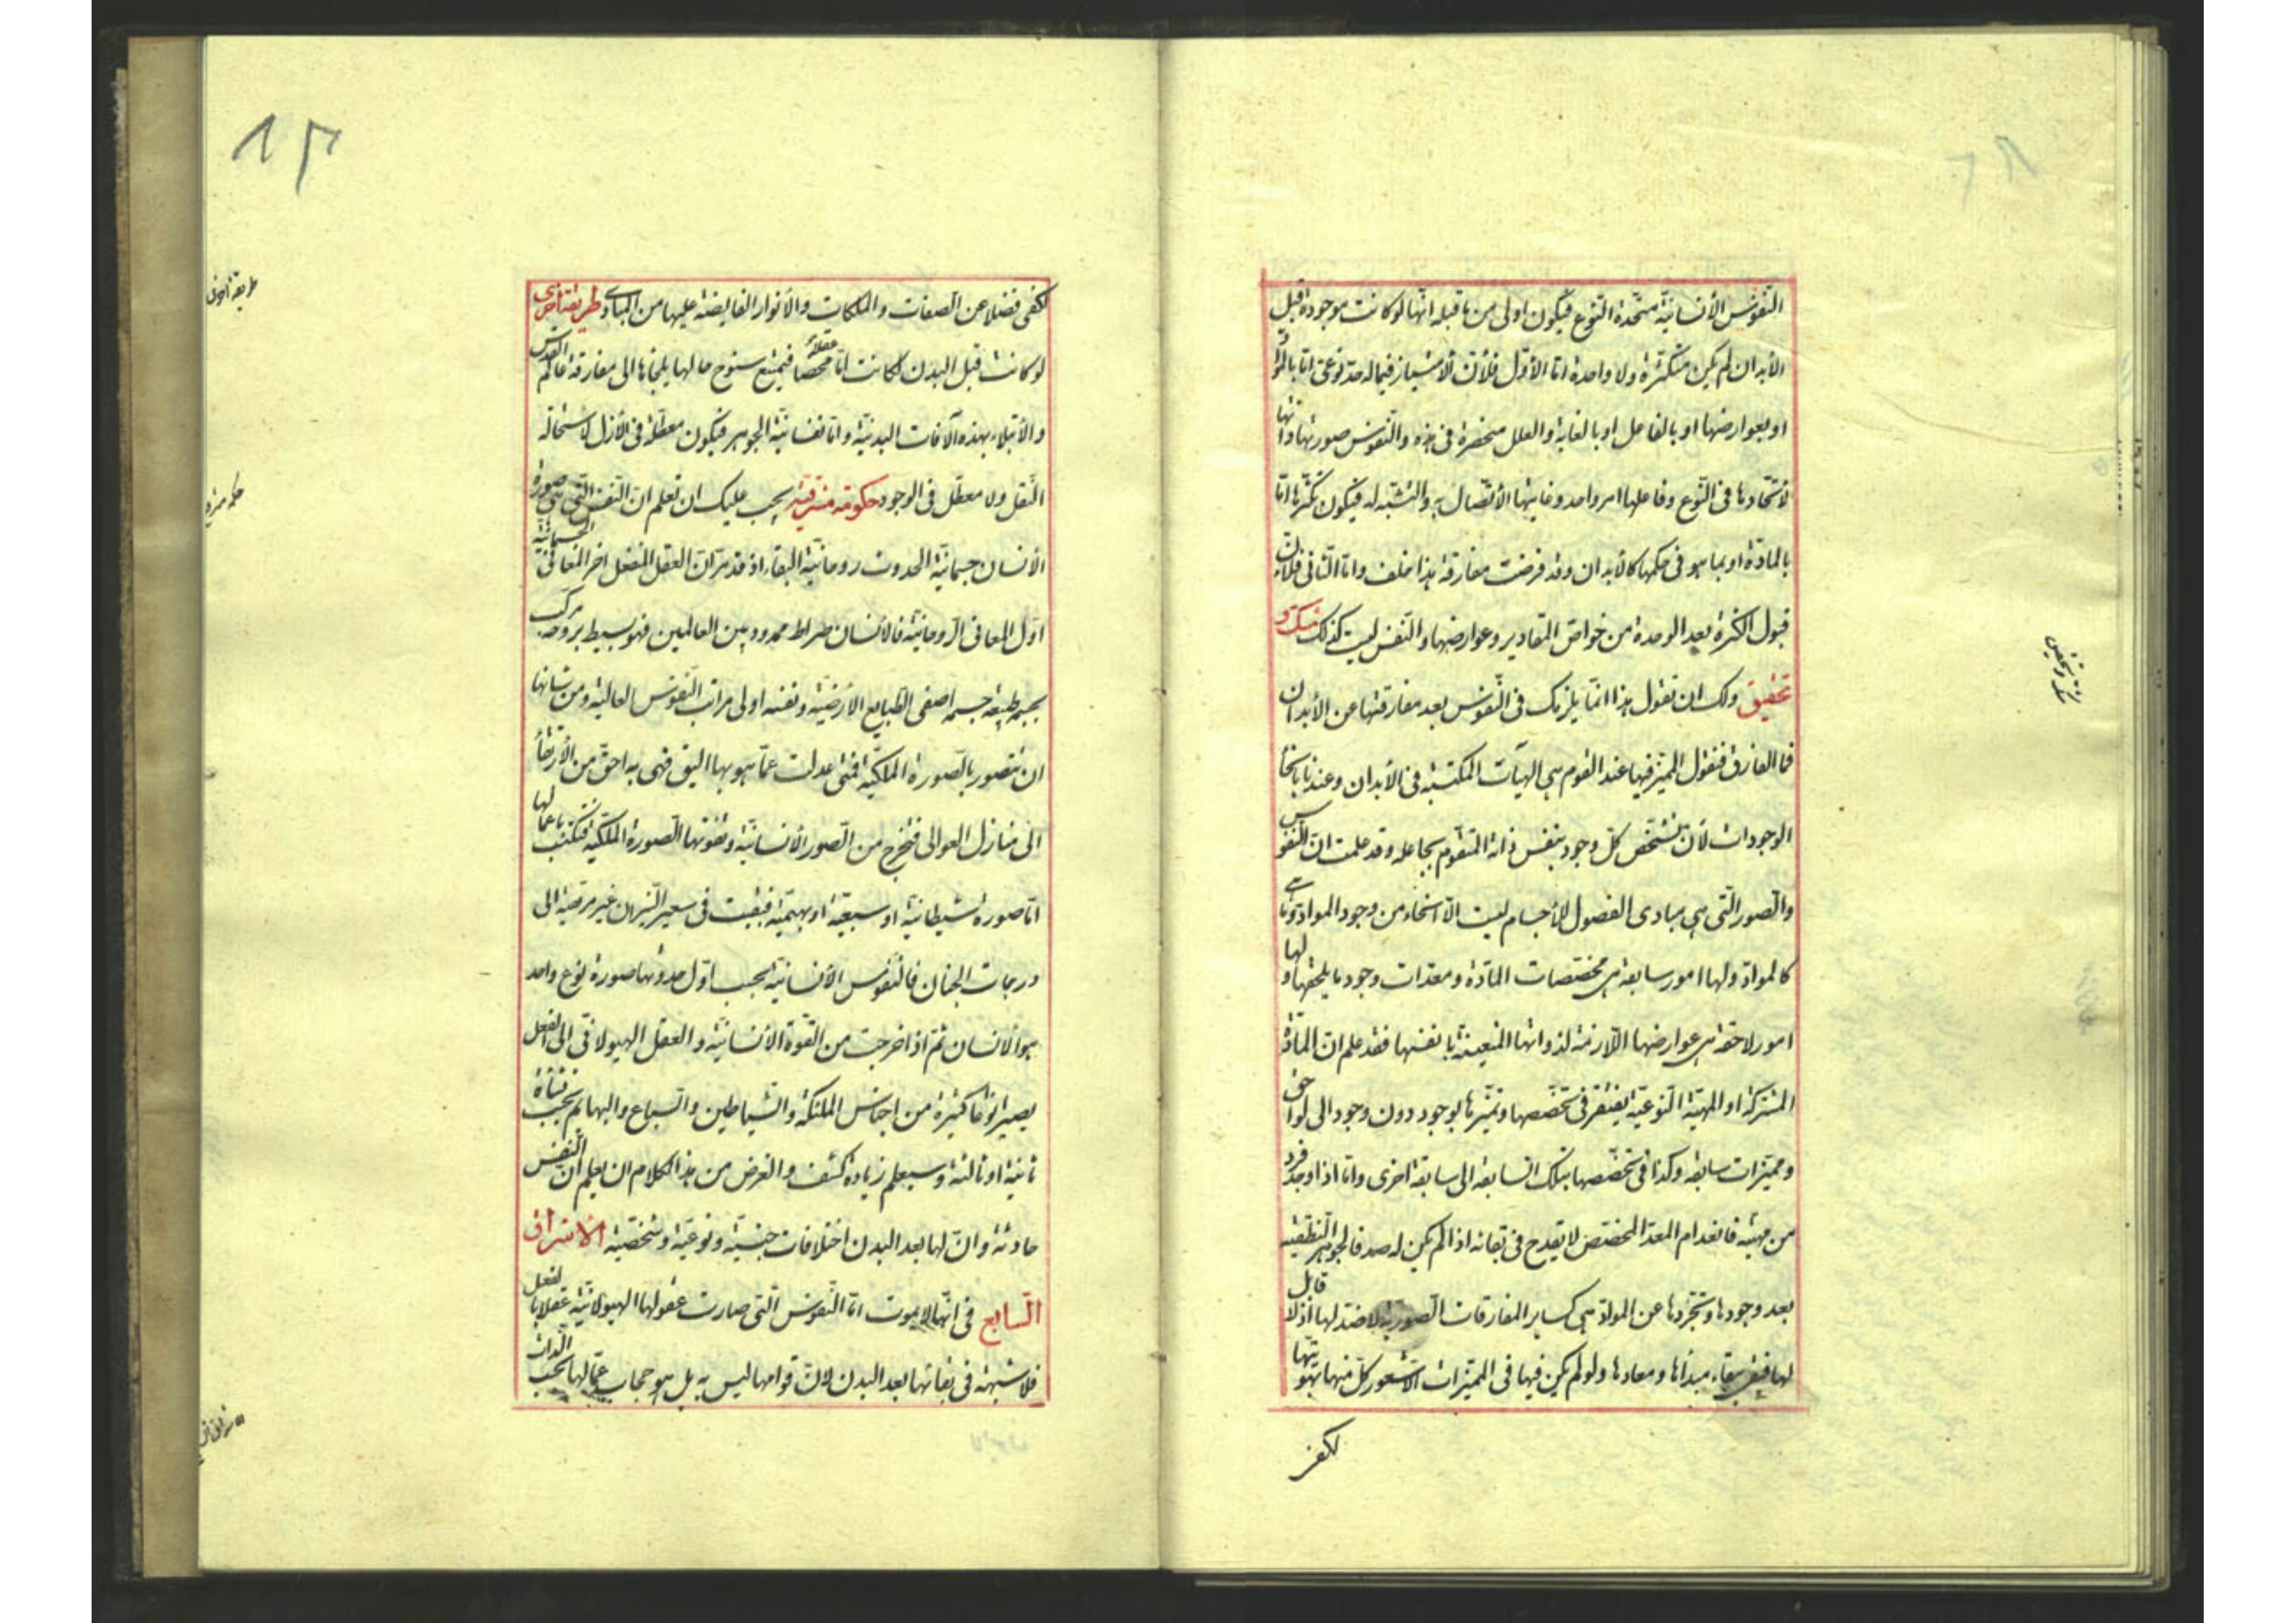 النّفوس الأنسانيّة متّحدة النّوع فيكون اولى من ما قبله انّها لو كانت موجودة قبل
الأبدان لم يكن متكثّرة ولا واحدة امّا الأوّل فلأنّ الأمتياز فيما له حدّ نوعى امّا بالموادّ
او بعوارضها او بالفاعل او بالغاية والعلل منحصرة فى هذه والنّفوس صورتها ذاتها
لاتّحادها فى النّوع وفاعلها امر واحد وغايتها الأتّصال به والتّشبّه له فيكون تكثّرها امّا
بالمادّة او بما هو فى حكمها كالأبدان وقد فرضت مفارقة هذا خلف وامّا الثّانى فلأنّ
قبول الكثرة بعد الوحدة من خواصّ المقادير وعوارضها والنّفس ليست كذلك شكّ و
تحقيق ولك ان تقول هذا انّما يلزمك فى النّفوس بعد مفارقتها عن الأبدان
فما الفارق فنقول المميّز فيها عند القوم هى الهيآت المكتسبة فى الأبدان وعندنا بانحاء
الوجودات لأنّ تشخّص كلّ وجود بنفس ذاته المتقوّم بجاعله وقد علمت انّ النّفوس
والصّور الّتى هى مبادى الفصول للأجسام ليست الّا انحاء من وجود الموادّ
كالموادّ ولها امور سابقة هى مخصّصات المادّة ومعدّات وجود ما يلحقها ولها
امور لاحقة هى عوارضها اللّازمة لذواتها المتعيّنة بانفسها فقد علم انّ المادّة
المشتركة او المهيّة النّوعيّة يفتقر فى تخصّصها وتميّزها بوجود دون وجود الى لواحق
ومميّزات سابقة وكذا فى تخصّصها بتلك السّابقة الى سابقة اخرى وامّا اذا وجد فرد
من مهيّته فانعدام المعدّ المخصّص لا يقدح فى بقائه اذا لم يكن له ضد فالجوهر النّطقيّة
بعد وجودها وتجرّدها عن الموادّ هى كساير المفارقات الصّوريّة لا ضدّ لها اذ لا قابل
لها فتبقى ببقاء مبدأها ومعادها ولو لم يكن فيها فى المميّزات الّا شعور كلّ منها بهويّتها
لكفى
لكفى فضلا عن الصفات والملكات والأنوار الفايضة عليها من المبادى طريقة اخرى
لو كانت قبل البدن لكانت امّا عقلا محضا فيمتنع سنوح حالها يلجئها الى مفارقة عالم القدس
والأبتلاء بهذه الآفات البدنيّة وامّا نفسانيّة الجوهر فيكون معطّلة فى الأزل لاستحالة
النّقل ولا معطّل فى الوجود حكومة مشرقيّة يجب عليك ان تعلم انّ النّفس الّتى هى صورة
الأنسان جسمانيّة الحدوث روحانيّة البقاء اذ قد مرّ انّ العقل المنفعل اخر المعانى الجسمانيّة
اوّل المعانى الرّوحانيّة فالأنسان صراط ممدود بين العالمين فهو بسيط بروحه مركّب
بجسمه طبيعة جسمه اصفى الطّبايع الأرضيّة ونفسه اولى مراتب النّفوس العالية ومن شأنها
ان تتصوّر بالصّورة الملكيّة فمتى عدلت عمّا هو بها اليق فهى به احقّ من الأرتقاء
الى منازل العوالى فتخرج من الصّور الأنسانيّة وتفوتها الصّورة الملكيّة فتكتسب باعمالها
امّا صورة شيطانيّة او سبعيّة او بهيميّة فبقيت فى سعير النّيران غير مرقية الى
درجات الجنان فالنّفوس الأنسانيّة بحسب اوّل حدوثها صورة نوع واحد
هو الأنسان ثمّ اذا خرجت من القوّة الأنسانيّة والعقل الهيولانى الى الفعل
يصير انواعا كثيرة من اجناس الملئكة والشّياطين والسّباع والبهايم بحسب نشأة
ثانية او ثالثة وسيعلم زيادة كشف والغرض من هذا الكلام ان يعلم انّ النّفس
حادثة وانّ لها بعد البدن اختلافات جنسيّة ونوعيّة وشخصيّة الاشراق
السّابع فى انّها لا يموت امّا النّفوس الّتى صارت عقولها الهيولانيّة عقلا بالفعل
فلا شبهة فى بقائها بعد البدن لانّ قوامها ليس به بل هو حجاب عمّا لها بحسب الذّات
طريقة اخرى